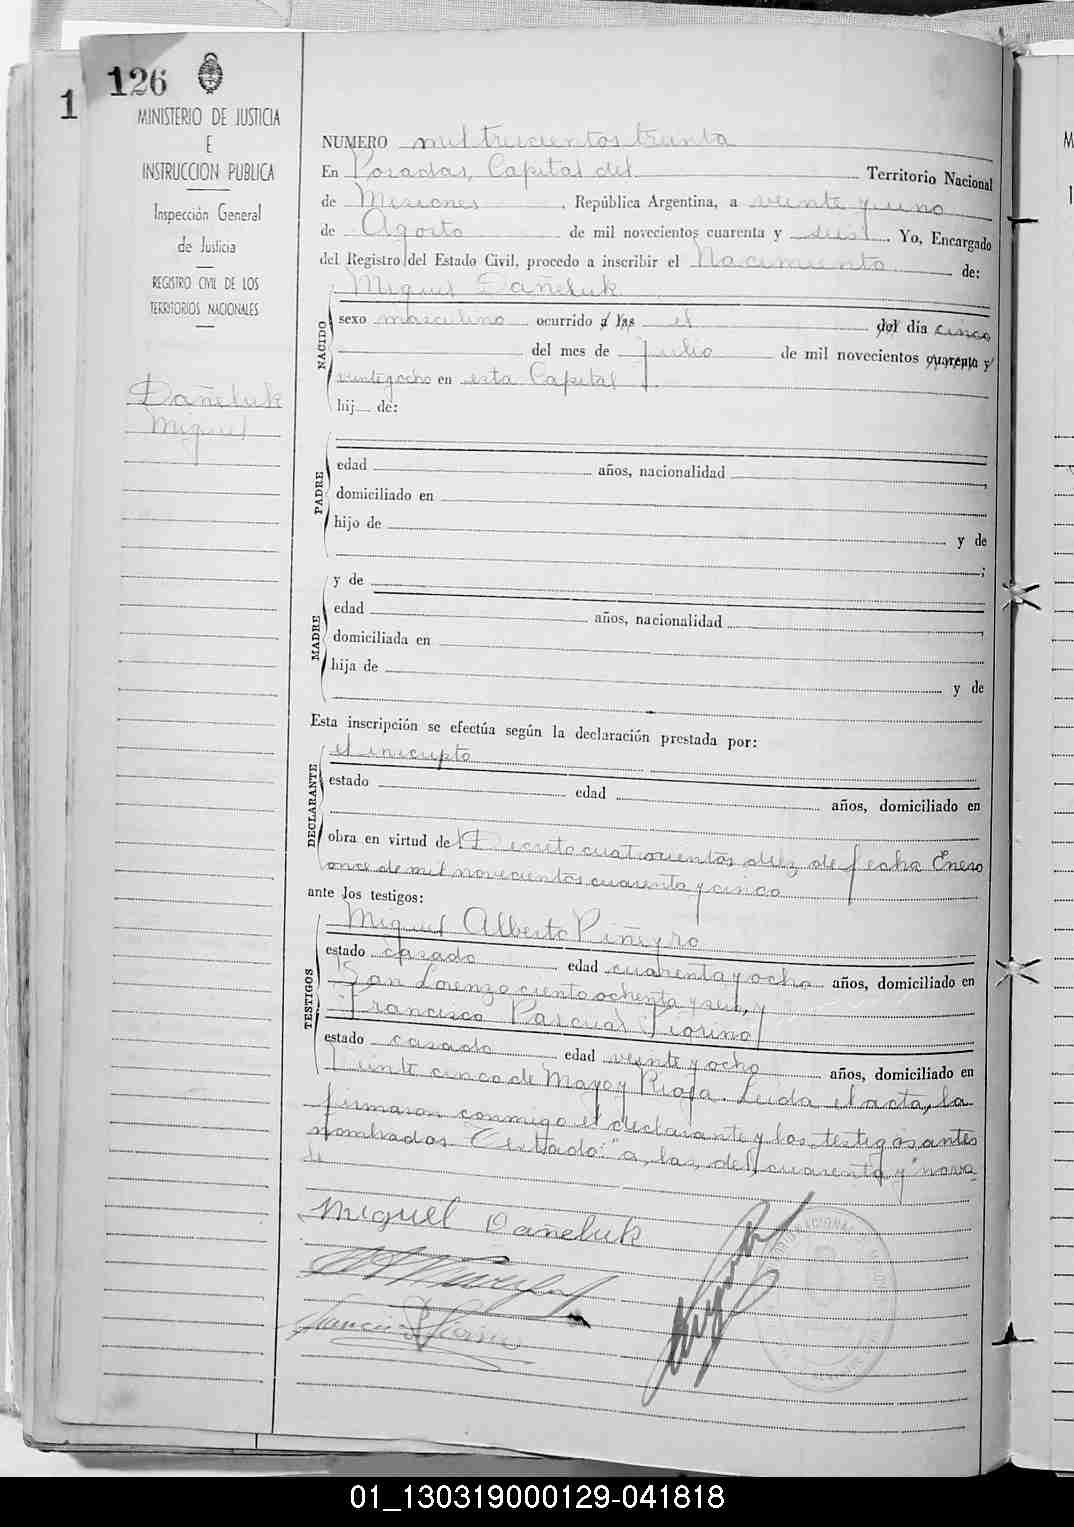 126
1
MINISTERIO DE JUSTICIA
E
INSTRUCCION PUBLICA
Inspección General
de Justicia
REGISTRO CIVIL DE LOS
TERRITORIOS NACIONALES
Dañeluk
Miguel
NUMERO mil trescientos treinta
En Posadas, Capital del Territorio Nacional
de Misiones, República Argentina, a veinte y uno
de Agosto de mil novecientos cuarenta y seis. Yo, Encargado
del Registro del Estado Civil, procedo a inscribir el Nacimiento de:
Miguel Dañeluk
NACIDO
sexo masculino ocurrido a las el del día cinco
del mes de julio de mil novecientos cuarenta y
veinteyocho en esta Capital
hij de:
PADRE
edad años, nacionalidad
domiciliado en
hijo de y de
;
MADRE
y de
edad años, nacionalidad
domiciliada en
hija de y de
Esta inscripción se efectúa según la declaración prestada por:
DECLARANTE
el inscripto
estado edad años, domiciliado en
obra en virtud del Decreto cuatrocientos diez de fecha Enero
once de mil novecientos cuarenta y cinco
ante los testigos:
TESTIGOS
Miguel Alberto Piñeyro
estado casado edad cuarenta y ocho años, domiciliado en
San Lorenzo ciento ochenta y seis, y
Francisco Pascual
estado casado edad veinte y ocho años, domiciliado en
Veinte cinco de Mayo y Rioja. Leída el acta, la
firmaron conmigo el declarante y los testigos antes
nombrados. Testado: "a, las, del, cuarenta y" nova
le
Miguel Dañeluk
01_130319000129-041818